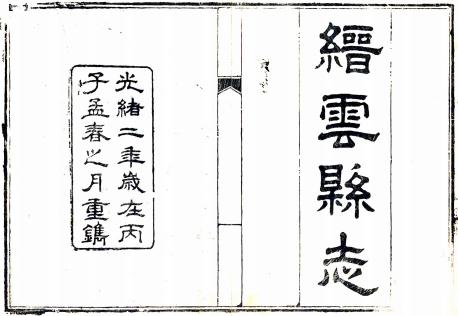 縉雲縣志
光緒二年歲在丙
子孟春之月重鐫